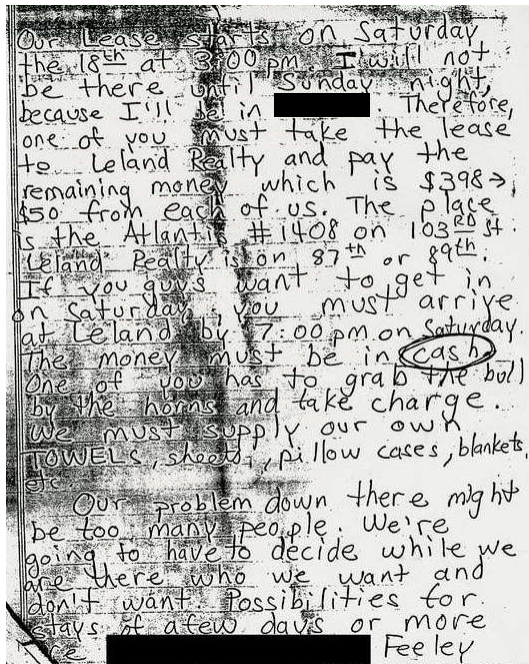 Our Lease starts on Saturday
the 18th at 3:00 pm. I will not
be there until Sunday night,
because I'll be in . Therefore,
one of you must take the lease
to Leland Realty and pay the
remaining money which is $398→
$50 from each of us. The place
is the Atlantis #1408 on 103RD st.
Leland Realty is on 87th or 89th.
If you guys want to get in
on Saturday, you must arrive
at Leland by 7:00 pm on Saturday.
The money must be in cash.
One of you has to grab the bull
by the horns and take charge.
We must supply our own
TOWELS, sheets, pillow cases, blankets,
etc.
Our problem down there might
be too many people. We're
going to have to decide while we
are there who we want and
don't want. Possibilities for
stays of a few days or more
are Feeley